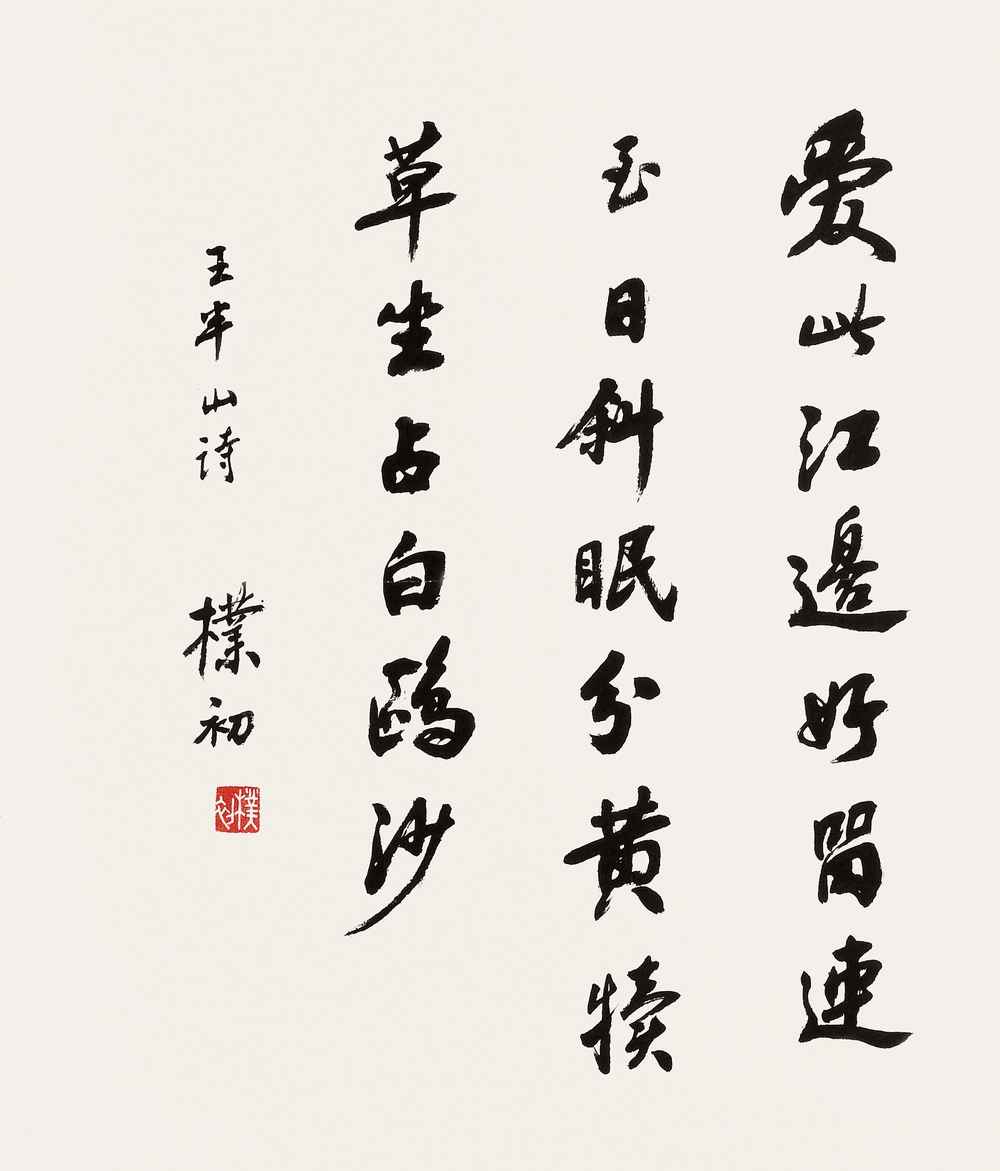 爱此江邊好留連
至日斜眠分黄犊
草坐占白鷗沙
王半山诗 樸初
樸初